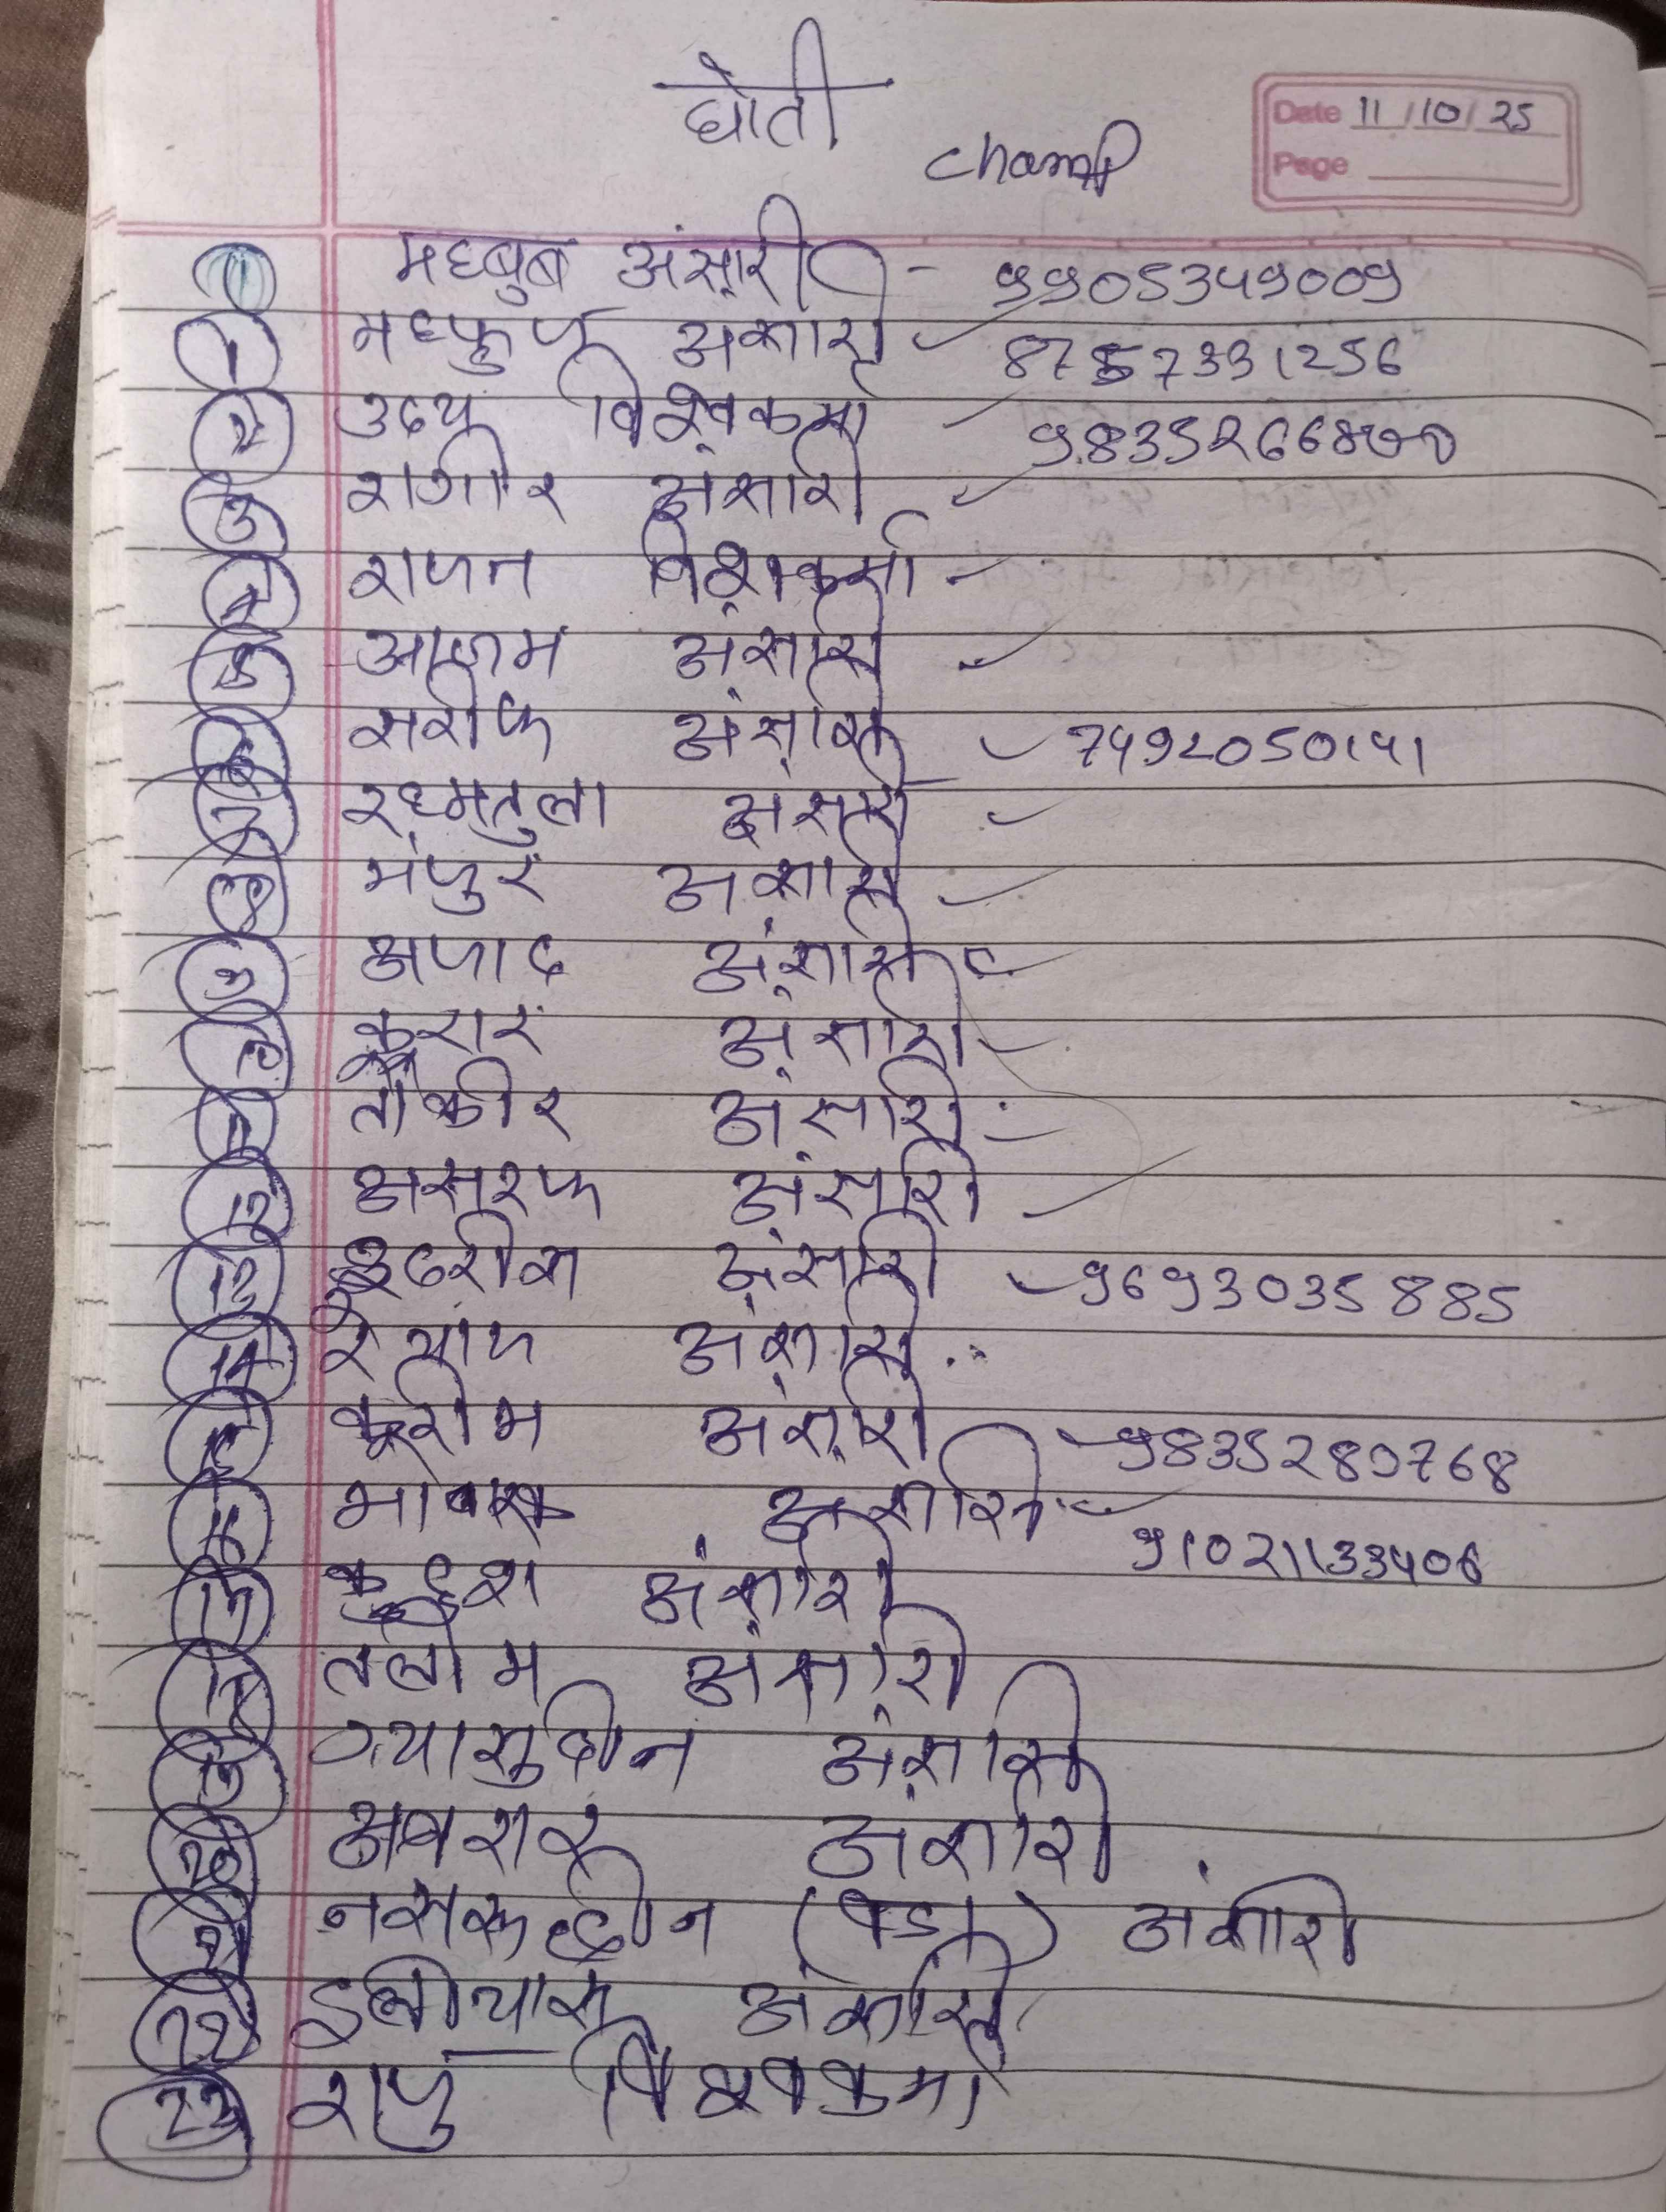 घोती
champ
Date 11/10/25
Page
1 मह्बुब अंसारी - 9905349009
1 मह्फुज अंसारी - 8757331256
2 उदय विश्वकर्मा - 9835266870
3 रागीर अंसारी -
4 राजन विश्वकर्मा -
5 आजम अंसारी -
6 सरीफ अंसारी - 7492050141
7 रहमतुला अंसारी -
8 मंजुर अंसारी -
9 अजाद अंसारी -
10 अंसारी -
11 तौकीर अंसारी -
12 असरफ अंसारी -
13 इदरीस अंसारी - 9693035885
14 रेयाज अंसारी
15 करीम अंसारी - 9835280768
16 अंसारी - 91021133406
17 अंसारी
18 तलीम अंसारी
19 ग्यासुदीन अंसारी
20 अबरार अंसारी
21 नसरूद्दीन (बडा) अंसारी
22 इलीयास अंसारी
23 राजु विश्वकर्मा